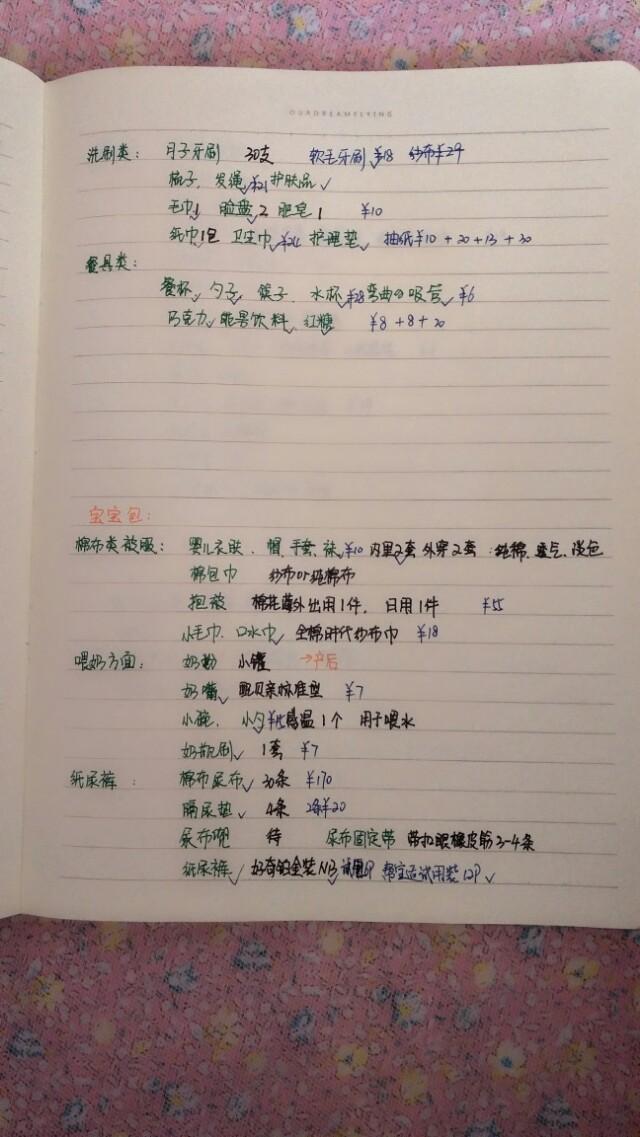 OURDREAMFLYING
洗刷类： 月子牙刷 30支 软毛牙刷✓¥18 纱布¥29
梳子、发绳✓¥21护肤品✓
毛巾1 脸盆✓2 肥皂1 ¥10
纸巾1包 卫生巾✓¥24 护理垫✓ 抽纸¥10+20+13+30
餐具类：
餐杯✓ 勺子✓ 筷子、水杯✓¥28弯曲的吸管✓¥6
巧克力✓能量饮料✓红糖 ¥8+8+20
宝宝包：
棉布类被服： 婴儿衣服、帽、手套、袜✓¥10 内里2套 外穿2套：纯棉、透气、浅色
棉包巾 纱布or纯棉布
抱被 棉花薄外出用1件，日用1件 ¥55
小毛巾、口水巾✓ 全棉时代纱布巾 ¥18
喂奶方面： 奶粉 小罐 →产后
奶嘴✓ 配贝亲标准型 ¥7
小碗、小勺✓¥15感温1个 用于喂水
奶瓶刷✓ 1套 ¥7
纸尿裤： 棉布尿布✓ 30条 ¥170
隔尿垫✓ 4条 2条¥20
尿布 待 尿布固定带 带扣眼橡皮筋3-4条
纸尿裤✓ 好奇铂金装NB 帮宝适试用装12P✓